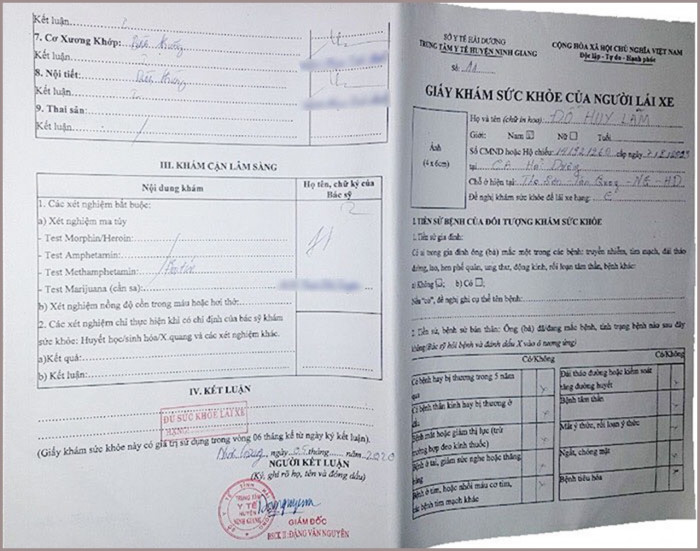 Kết luận
7. Cơ Xương Khớp: Bình thường
Kết luận
8. Nội tiết: Bình thường
Kết luận
9. Thai sản:
Kết luận
III. KHÁM CẬN LÂM SÀNG
Nội dung khám
Họ tên, chữ ký của Bác sỹ
1. Các xét nghiệm bắt buộc:
a) Xét nghiệm ma túy
- Test Morphin/Heroin:
- Test Amphetamin:
- Test Methamphetamin:
- Test Marijuana (cần sa):
b) Xét nghiệm nồng độ cồn trong máu hoặc hơi thở:
2. Các xét nghiệm chỉ thực hiện khi có chỉ định của bác sỹ khám
sức khỏe: Huyết học/sinh hóa/X.quang và các xét nghiệm khác.
a)Kết quả:
b) Kết luận:
IV. KẾT LUẬN
ĐỦ SỨC KHỎE LÁI XE
HẠNG
(Giấy khám sức khỏe này có giá trị sử dụng trong vòng 06 tháng kể từ ngày ký kết luận).
Ninh Giang, ngày 05 tháng năm 2020
NGƯỜI KẾT LUẬN
(Ký, ghi rõ họ, tên và đóng dấu)
TRUNG TÂM
Y TẾ
HUYỆN
NINH GIANG
GIÁM ĐỐC
BSCK II. ĐẶNG VĂN NGUYÊN
SỞ Y TẾ HẢI DƯƠNG
TRUNG TÂM Y TẾ HUYỆN NINH GIANG
Số:
CỘNG HÒA XÃ HỘI CHỦ NGHĨA VIỆT NAM
Độc lập - Tự do - Hạnh phúc
GIẤY KHÁM SỨC KHỎE CỦA NGƯỜI LÁI XE
Ảnh
(4 x 6cm)
Họ và tên (chữ in hoa): ĐỖ HUY LÃM
Giới: Nam Nữ Tuổi:
Số CMND hoặc Hộ chiếu: cấp ngày
tại CA Hải Dương
Chỗ ở hiện tại: - NG - HD
Đề nghị khám sức khỏe để lái xe hạng: E
I. TIỀN SỬ BỆNH CỦA ĐỐI TƯỢNG KHÁM SỨC KHỎE
1. Tiền sử gia đình:
Có ai trong gia đình ông (bà) mắc một trong các bệnh: truyền nhiễm, tim mạch, đái tháo
đường, lao, hen phế quản, ung thư, động kinh, rối loạn tâm thần, bệnh khác:
a) Không ; b) Có
Nếu "có", đề nghị ghi cụ thể tên bệnh:
2. Tiền sử, bệnh sử bản thân: Ông (bà) đã/đang mắc bệnh, tình trạng bệnh nào sau đây
không (Bác sỹ hỏi bệnh và đánh dấu X vào ô tương ứng)
Có Không
Có Không
Có bệnh hay bị thương trong 5 năm qua
Đái tháo đường hoặc kiểm soát tăng đường huyết
Có bệnh thần kinh hay bị thương ở
Bệnh tâm thần
Bệnh mắt hoặc giảm thị lực (trừ trường hợp đeo kính thuốc)
Mất ý thức, rối loạn ý thức
Bệnh ở tai, giảm sức nghe hoặc thăng bằng
Ngất, chóng mặt
Bệnh ở tim, hoặc nhồi máu cơ tim, các bệnh tim mạch khác
Bệnh tiêu hóa